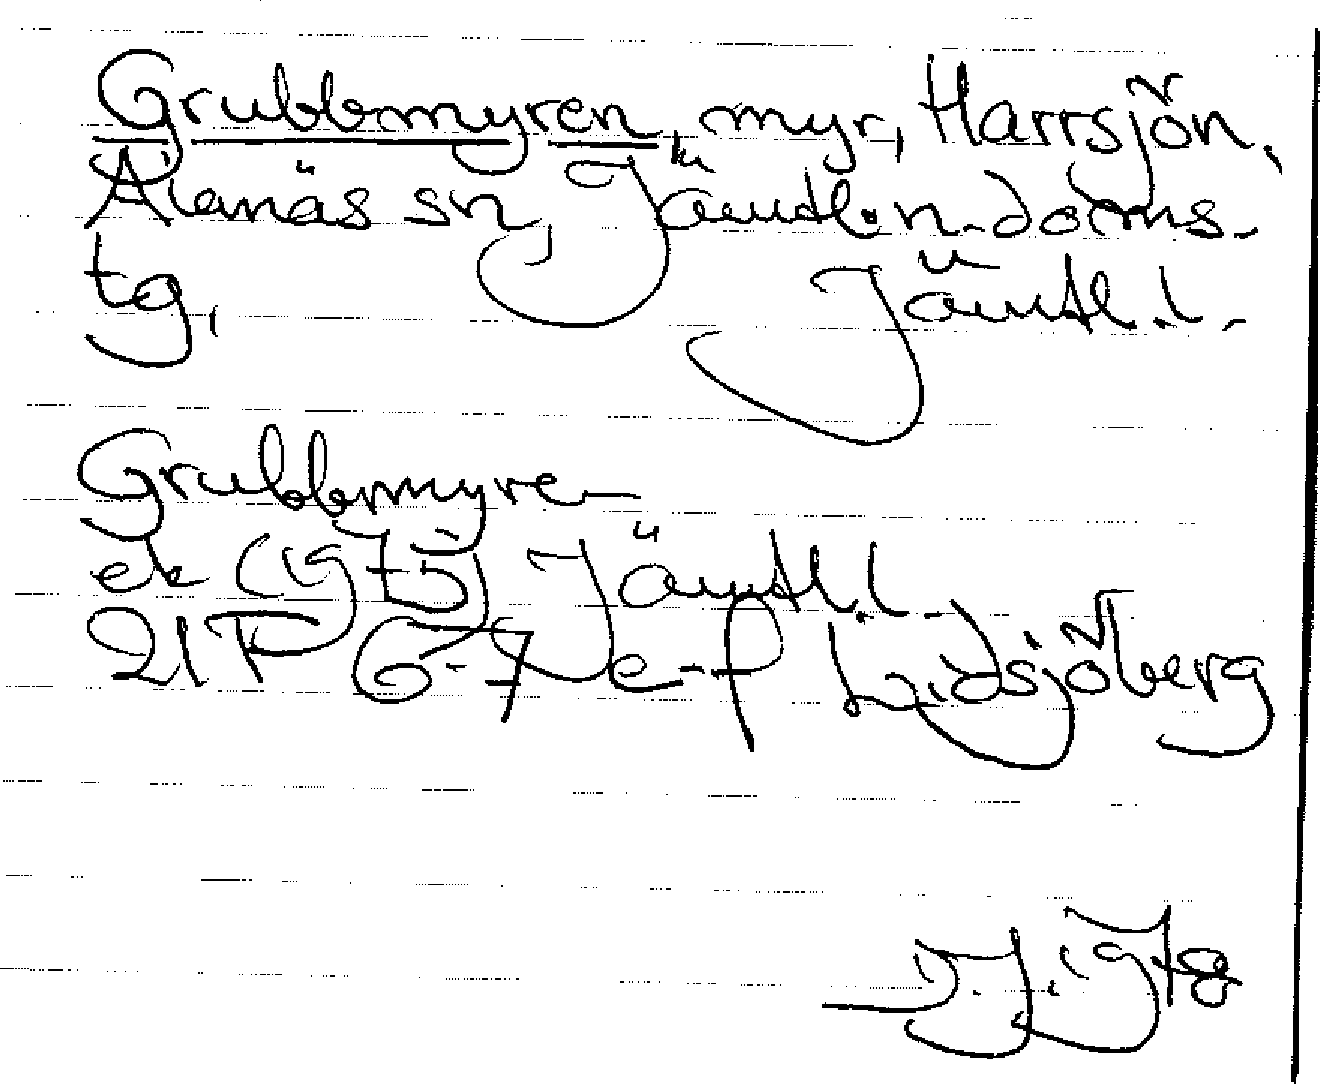 Grubbmyren, myr, Harrsjön,
Alanäs sn, Jämtl. n. doms.
tg, Jämtl. l.
Grubbmyren
ek (1975) Jämtl. l.
21F 6-7 e-f Lidsjöberg
1978